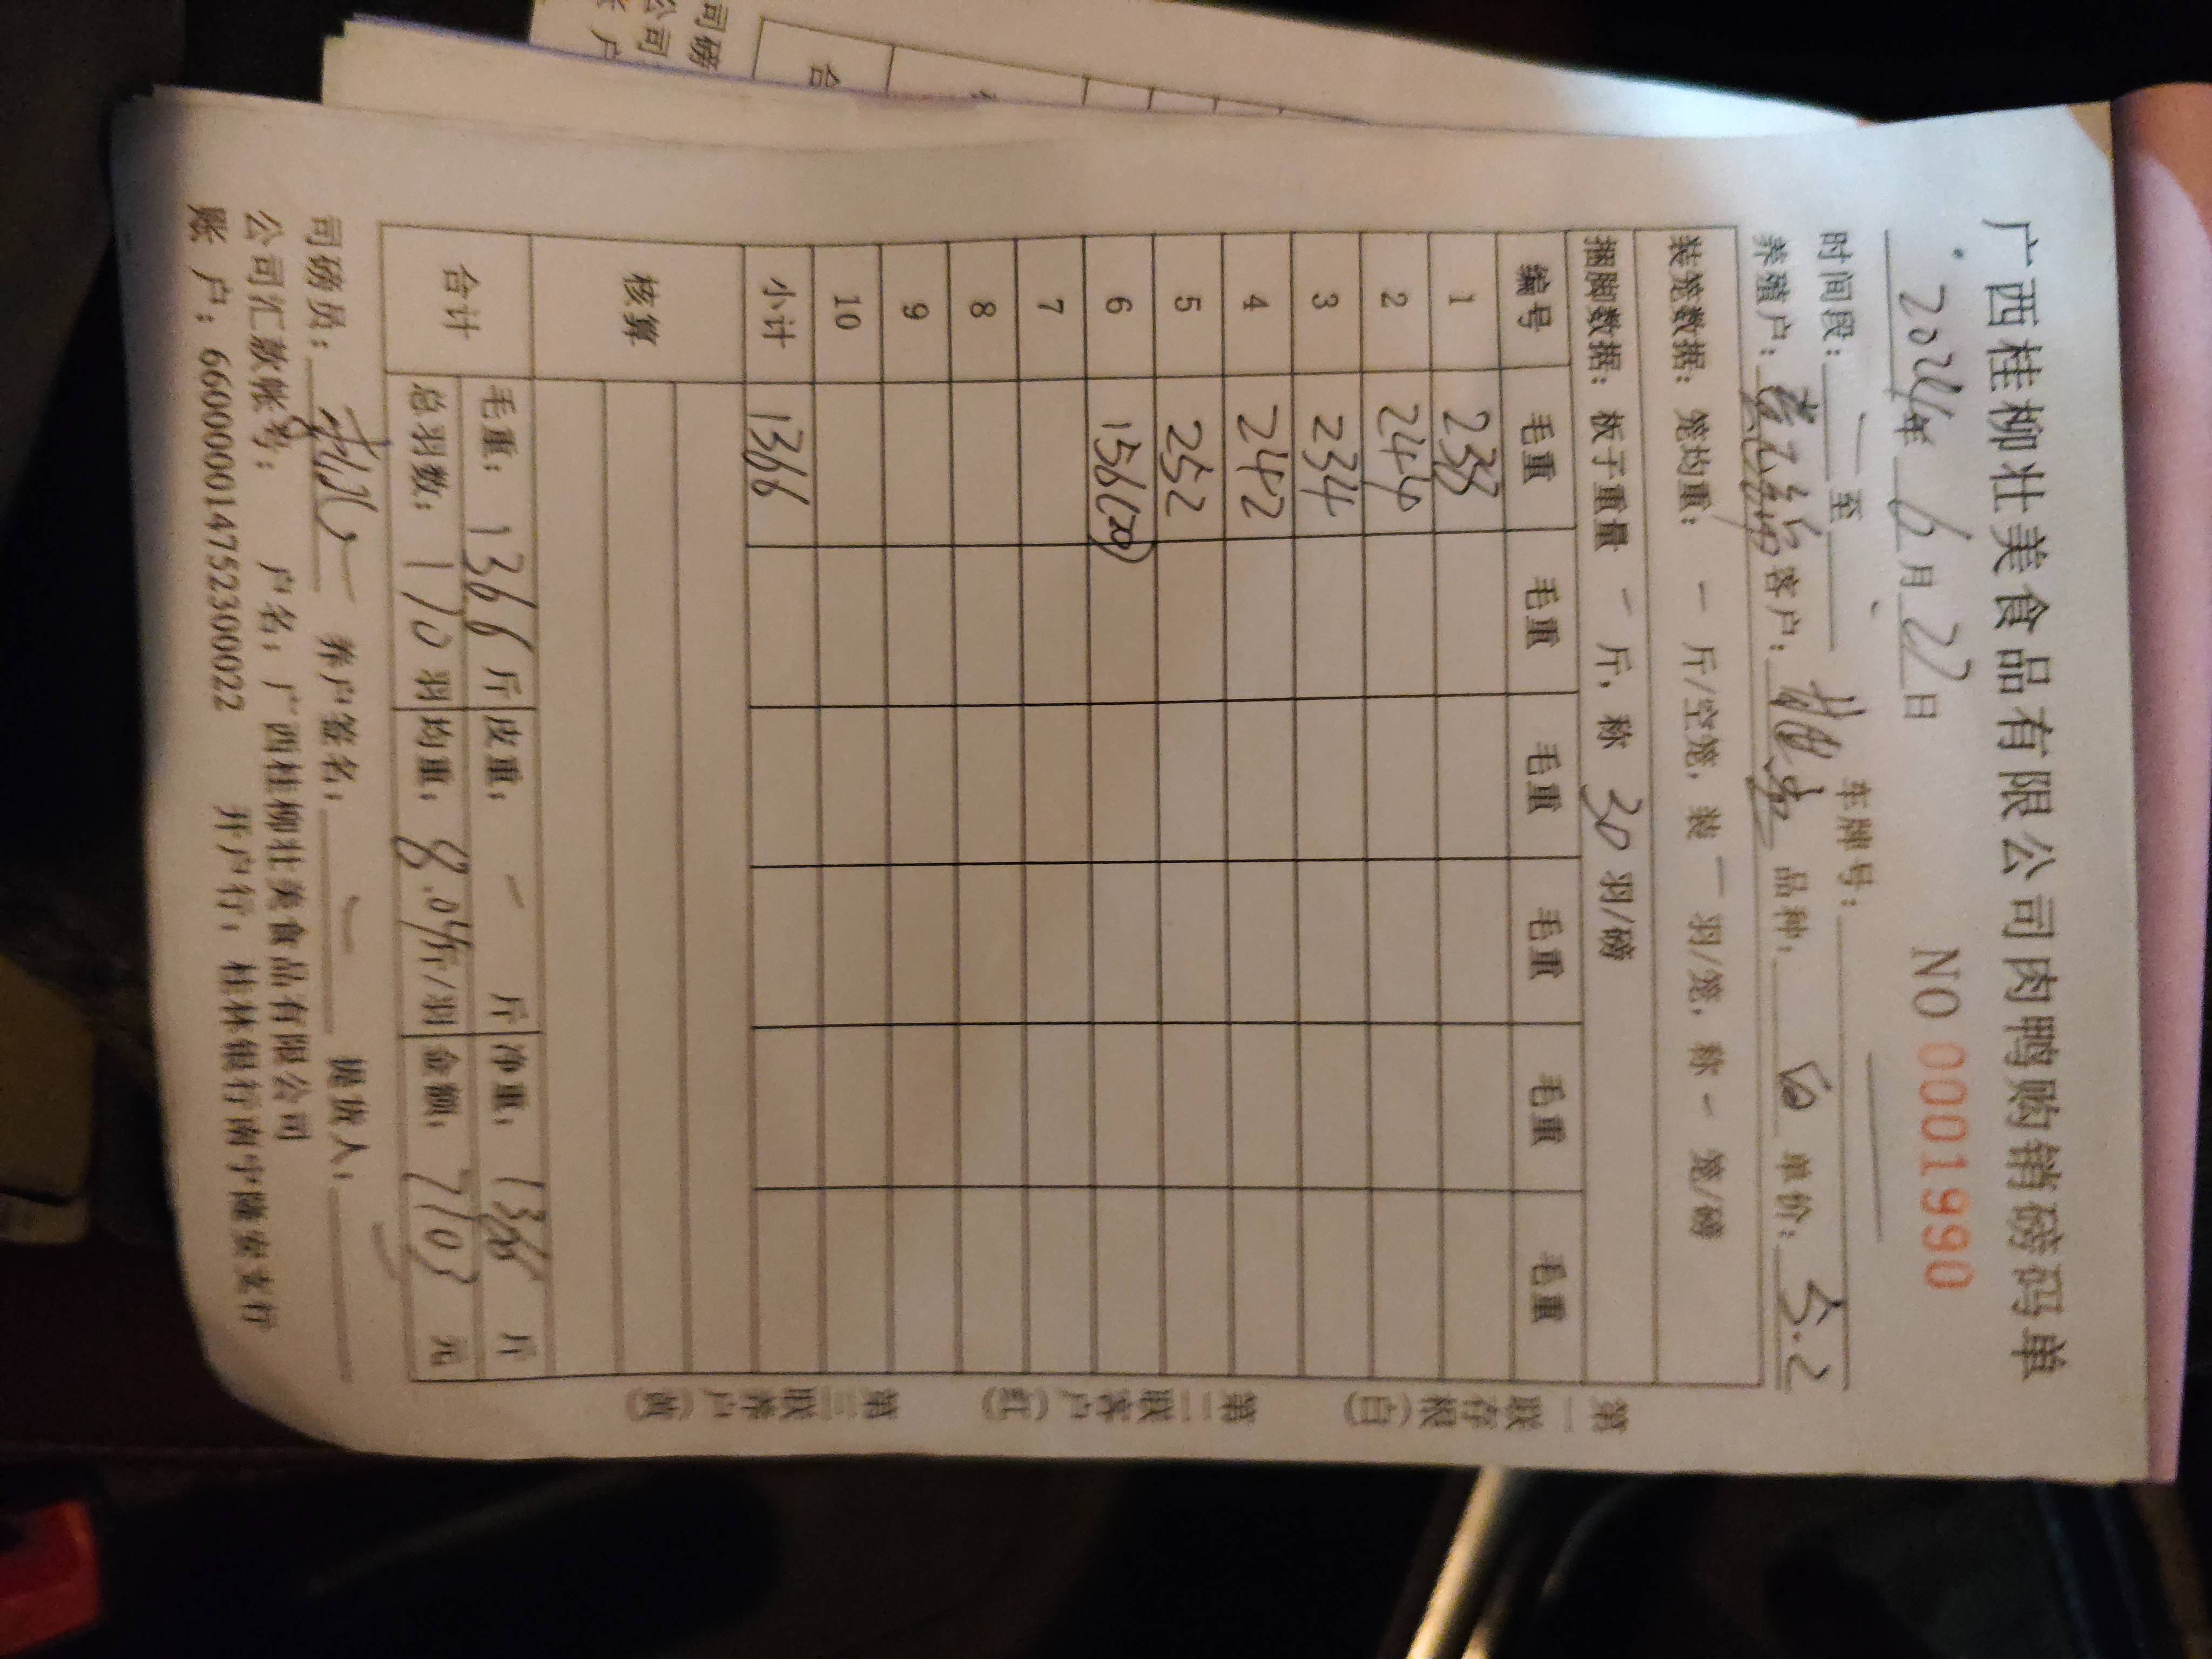 广西桂柳壮美食品有限公司肉鸭购销磅码单
2024年 6月 22日 NO 0001990
时间段： 至 车牌号：
养殖户： 客户： 品种： 白 单价： 5.2
装笼数据：笼均重： — 斤/空笼，装 — 羽/笼，称 — 笼/磅
捆脚数据：板子重量 — 斤，称 30 羽/磅
编号 毛重 毛重 毛重 毛重 毛重 毛重
1 238
2 244
3 234
4 242
5 252
6 156(20)
7
8
9
10
小计 1366
核算
合计 毛重： 1366 斤 皮重： — 斤 净重： 1366 斤
总羽数： 170 羽 均重： 8.04斤/羽 金额： 7103 元
司磅员： 养户签名： — 提货人：
公司汇款帐号： 户名：广西桂柳壮美食品有限公司
账 户：660000014752300022 开户行：桂林银行南宁隆安支行
第一联存根(白) 第二联客户(红) 第三联养户(黄)
司磅
公司
户
合